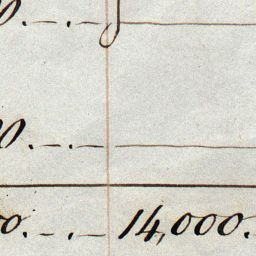 0.—.—
0.—.—
0.—.— 14,000.